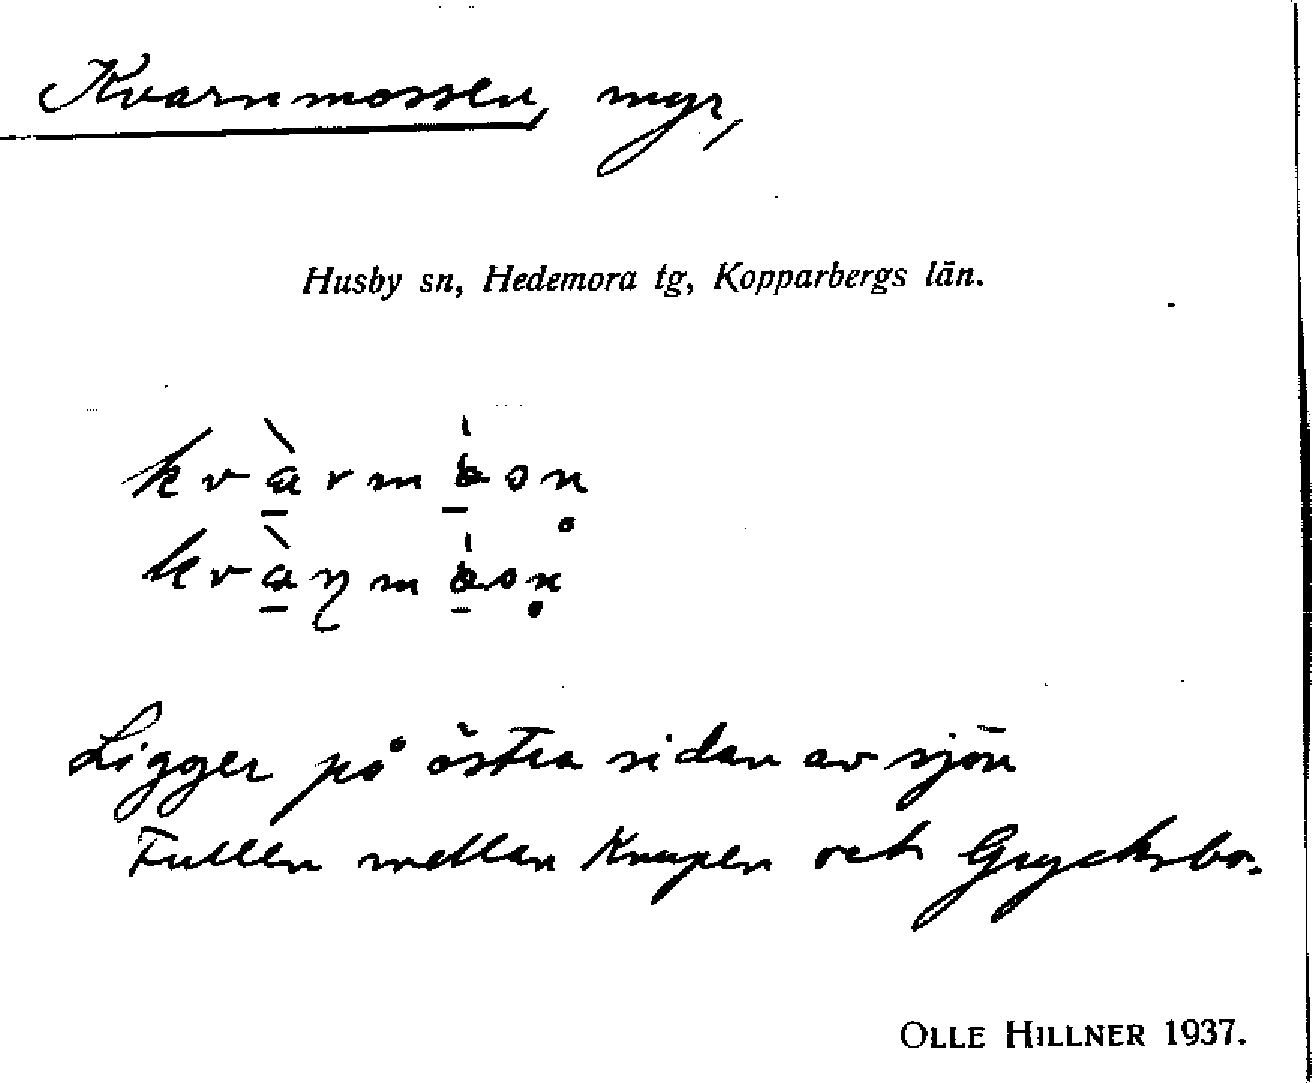 Kvarnmossen, myr,
Husby sn, Hedemora tg, Kopparbergs län.
Ligger på östra sidan av sjön
Fullen mellan Knapen och Grycksbo.
OLLE HILLNER 1937.